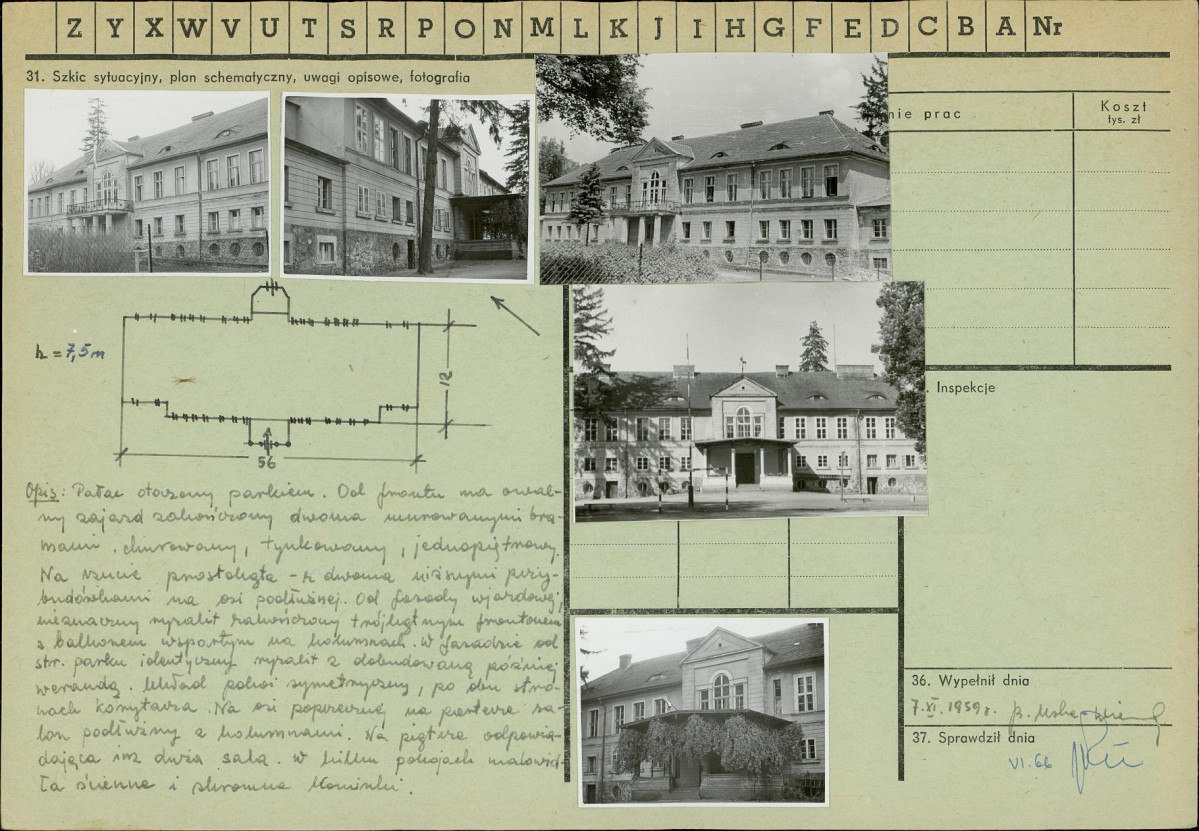 Z Y X W V U T S R P O N M L K J I H G F E D C B A Nr
31. Szkic sytuacyjny, plan schematyczny, uwagi opisowe, fotografia
nie prac
Koszt
tys. zł
h = 7,5 m
12
56
Opis: Pałac otoczony parkiem. Od frontu ma owal-
ny zajazd zakończony dwoma murowanymi bra-
mami. Murowany, tynkowany, jednopiętrowy.
Na rzucie prostokąta - z dwoma niższymi przy-
budówkami na osi podłużnej. Od fasady wjazdowej,
nieznaczny ryzalit zakończony trójkątnym frontonem
z balkonem wspartym na kolumnach. W fasadzie od
str. parku identyczny ryzalit z dobudowaną później
werandą. Układ pokoi symetryczny, po obu stro-
nach korytarza. Na osi poprzecznej, na parterze sa-
lon podłużny z kolumnami. Na piętrze odpowia-
dająca mu duża sala. W kilku pokojach malowid-
ła ścienne i skromne kominki.
Inspekcje
36. Wypełnił dnia
7.XI.1959 r.
37. Sprawdził dnia
VI.66